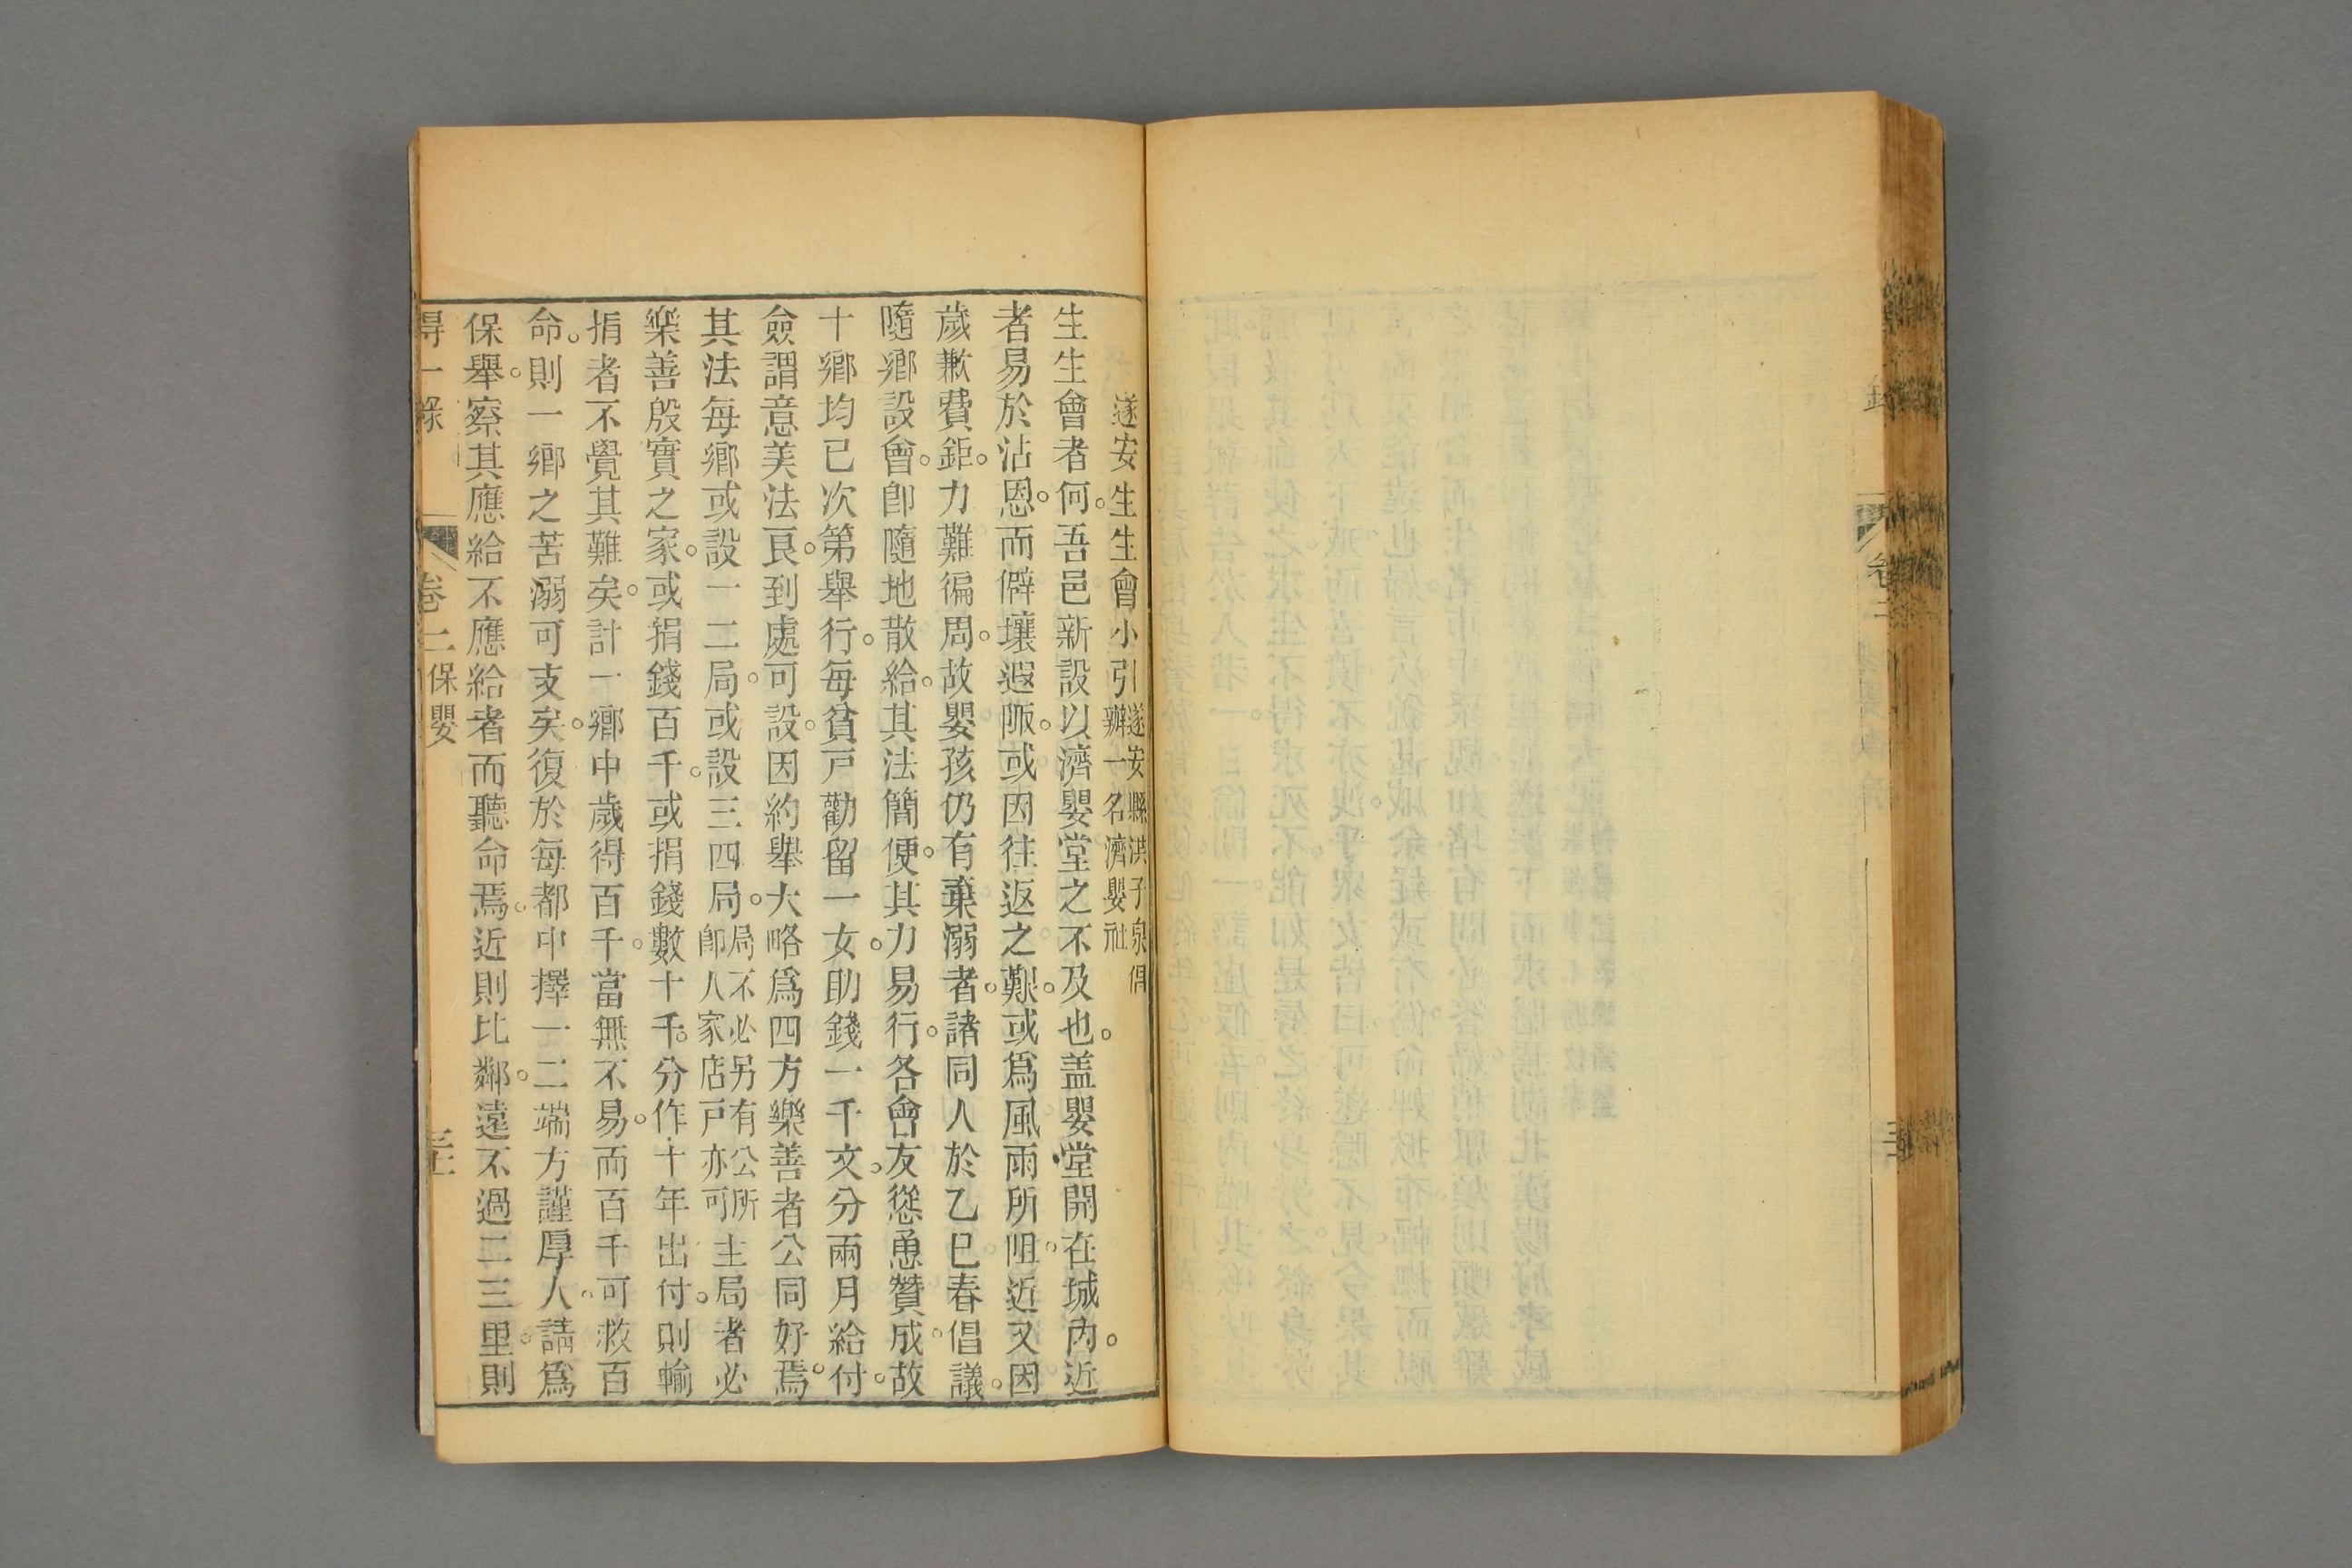 遂安生生會小引 遂安縣洪子泉倡辦一名濟嬰社
生生會者何。吾邑新設以濟嬰堂之不及也。盖嬰堂開在城内。近
者易於沾恩。而僻壤遐陬。或因往返之艱。或爲風雨所阻。近又因
歲歉費鉅。力難徧周。故嬰孩仍有棄溺者。諸同人於乙巳春倡議。
隨鄉設會。卽隨地散給。其法簡便。其力易行。各會友慫恿贊成。故
十鄉均已次第舉行。每貧戸勸留一女。助錢一千文。分兩月給付。
僉謂意美法良。到處可設。因約舉大略爲四方樂善者公同好焉。
其法每鄉或設一二局。或設三四局。局不必另有公所卽人家店戸亦可主局者必
樂善殷實之家。或捐錢百千。或捐錢數十千。分作十年出付。則輸
捐者不覺其難矣。計一鄉中歲得百千。當無不易。而百千可救百
命。則一鄉之苦溺可支矣。復於每都中擇一二端方謹厚人。請爲
保舉。察其應給不應給者而聽命焉。近則比鄰。遠不過二三里。則
得一錄 卷二保嬰 三十二
卷二